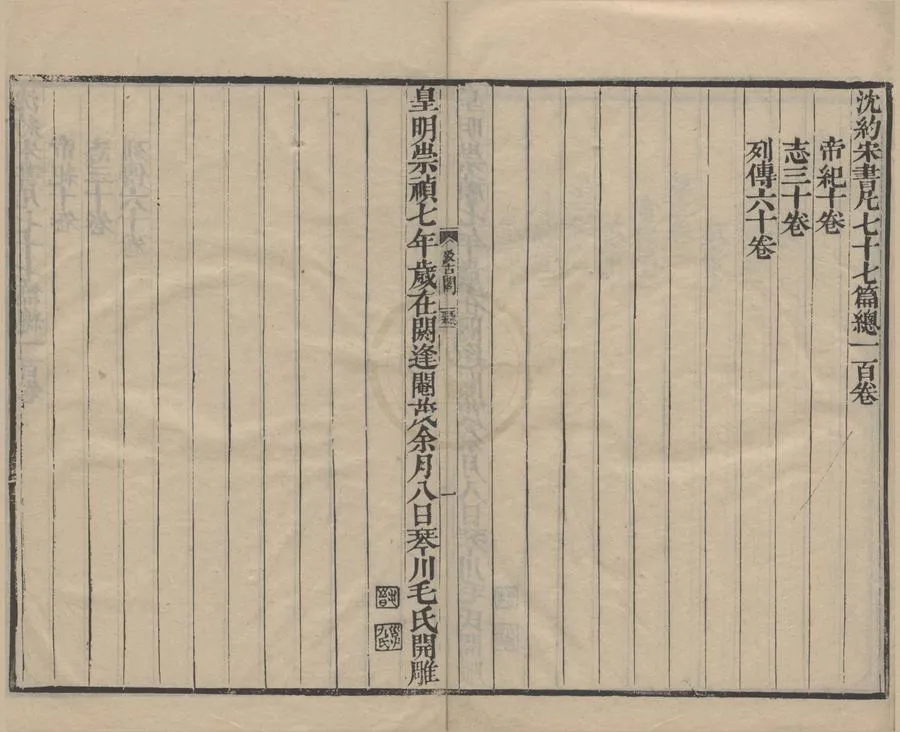 沈約宋書凡七十七篇總一百卷
帝紀十卷
志三十卷
列傳六十卷
汲古閣
一
皇明崇禎七年歲在閼逢閹茂余月八日琴川毛氏開雕